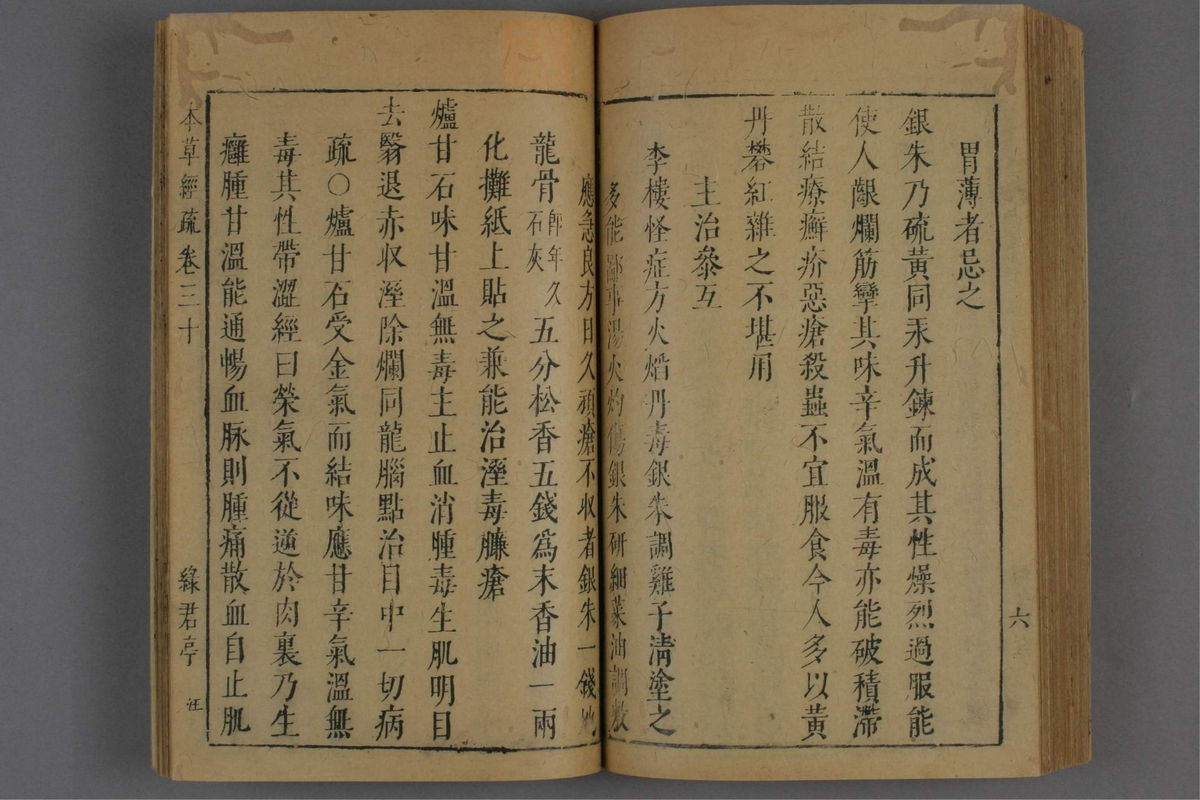 六
胃薄者忌之
銀朱乃硫黃同汞升鍊而成其性燥烈過服能
使人齦爛筋攣其味辛氣溫有毒亦能破積滯
散結療癬疥惡瘡殺蟲不宜服食今人多以黃
丹礬紅雜之不堪用
主治參互
李樓怪症方火焰丹毒銀朱調雞子清塗之
多能鄙事湯火灼傷銀朱研細菜油調敷
應急良方日久頑瘡不收者銀朱一錢
龍骨年久石灰五分松香五錢爲末香油一兩
化攤紙上貼之兼能治溼毒臁瘡
爐甘石味甘溫無毒主止血消腫毒生肌明目
去翳退赤収溼除爛同龍腦點治目中一切病
疏○爐甘石受金氣而結味應甘辛氣溫無
毒其性帶澀經曰榮氣不從逆於肉裏乃生
癰腫甘溫能通暢血脉則腫痛散血自止肌
本草經疏 卷三十 綠君亭